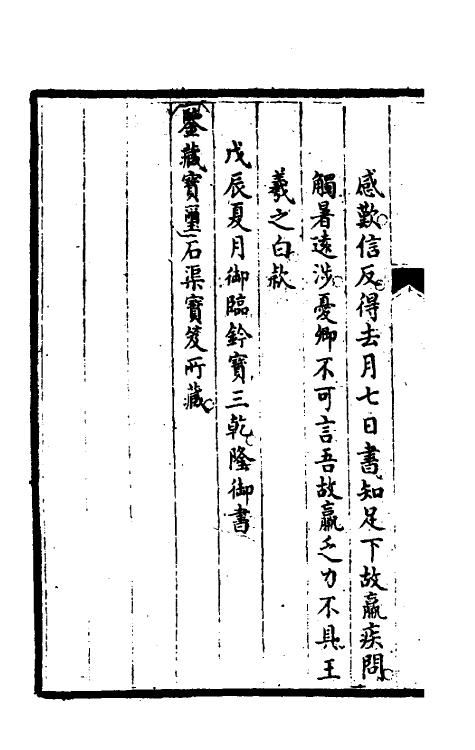 感歎信反得去月七日書知足下故羸疾問
觸暑遠涉憂卿不可言吾故羸乏力不具王
羲之白款
戊辰夏月御臨鈐寶三乾隆御書
鑒藏寶璽石渠寶笈所藏